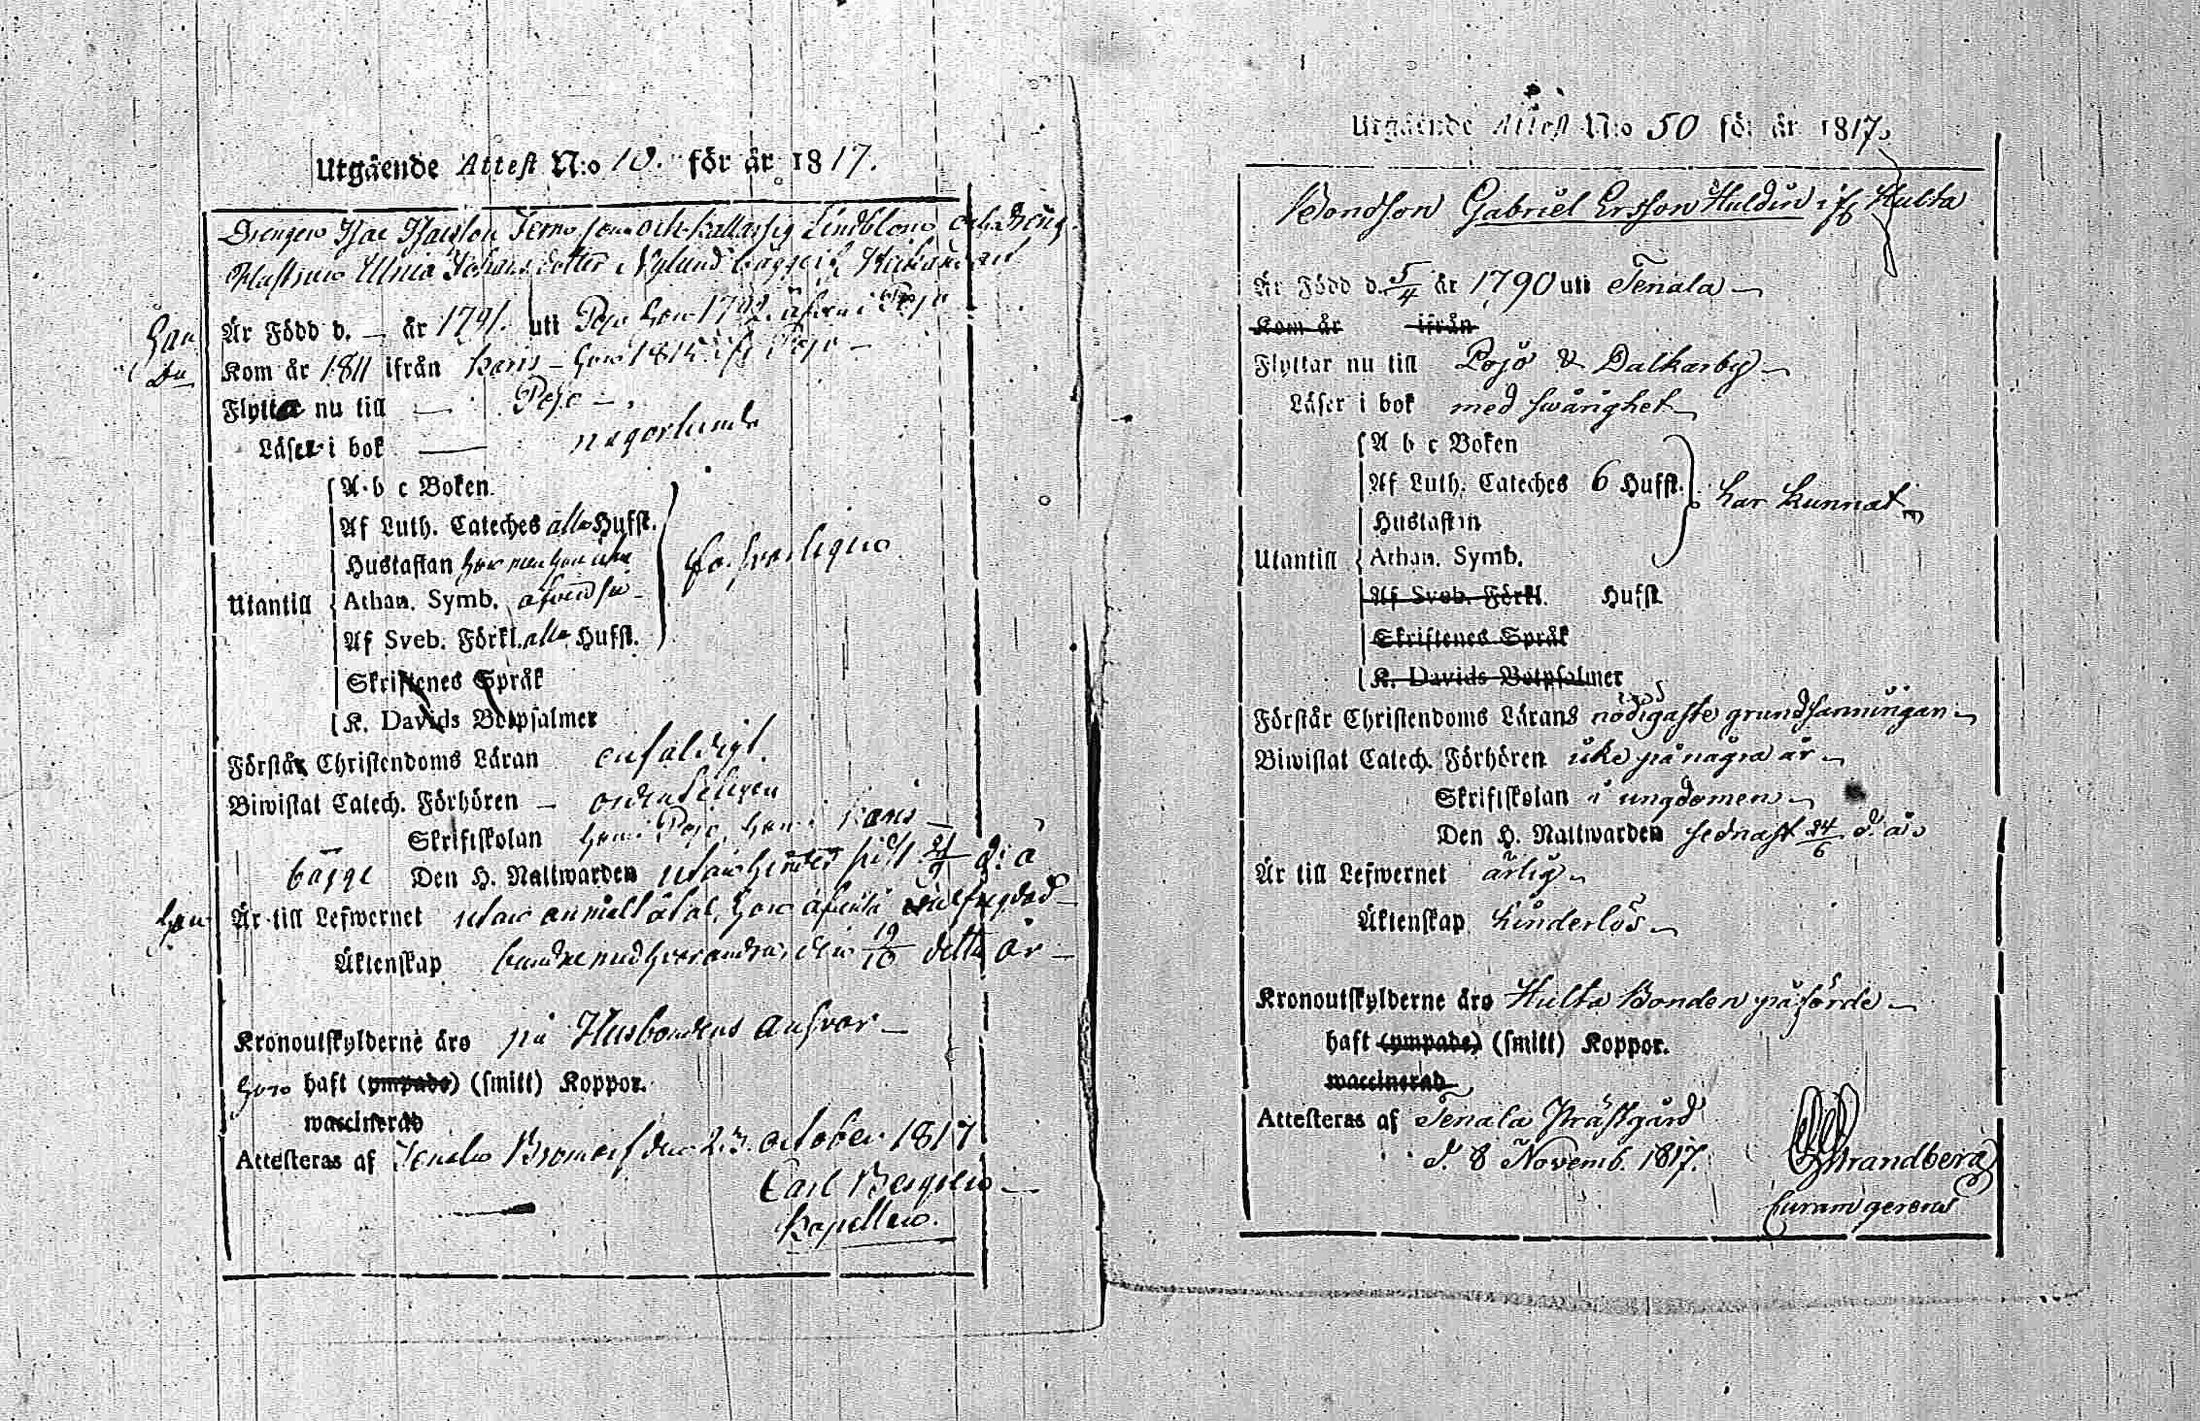 Utgående Attest N:o 10. för år 1817.
Drengen Isac Isacsson som kallar sig Lindblom och
Hustrun Ulrica Johansdotter Nylund bägge
Han Är Född d. — år 1791. uti Pojo hon 1792 äfven i Pojo
Kom år 1811 ifrån Karis — hon 1815 ifr Pojo —
Flytta nu till — Pojo —
Läser i bok — någorlunda
A b c Boken.
Af Luth. Cateches alla Hufst.
Hustaflan han men hon icke
Utantill Athan. Symb. äfven så —
Af Sveb. Förkl. alla Hufst.
Skriftenes Språk
K. Davids Botpsalmer
Förstår Christendoms Läran enfaldigt.
Biwistat Catech. Förhören — ordenteligen
Skriftskolan han i Pojo, hon i Karis —
bägge Den H. Nattwarden sist d. å
Han Är till Lefwernet utan anmält åtal, hon äfvenså
Äktenskap med hvarandra den 19/10 detta år —
Kronoutskylderne äro på Husbondens ansvar —
Hon haft (ympade) (smitt) Koppor.
waccinerad
Attesteras af Tenala Bromarf den 23 october 1817
Carl Bergen
Kapellan.
Utgående Attest N:o 50 för år 1817.
Bondson Gabriel Ersson Huldin ifr Hulta
Är Född d. 5/4 år 1790 uti Tenala
Kom år ifrån
Flyttar nu till Pojo & Dalkarby
Läser i bok med swårighet
A b c Boken
Af Luth. Cateches 6 Hufst. har kunnat
Hustaflan
Utantill Athan. Symb.
Af Sveb. Förkl. Hufst.
Skriftenes Språk
K. Davids Botpsalmer
Förstår Christendoms Lärans nödigaste grundsanningar
Biwistat Catech. Förhören icke på några år
Skriftskolan i ungdomen
Den H. Nattwarden sednast 24/6 d. å.
Är till Lefwernet ärlig
Äktenskap hinderlös
Kronoutskylderne äro Hulta Bonden påförde
haft (ympade) (smitt) Koppor.
waccinerad
Attesteras af Tenala Prästgård
d. 8 Novemb. 1817. Strandberg
Curam gerens